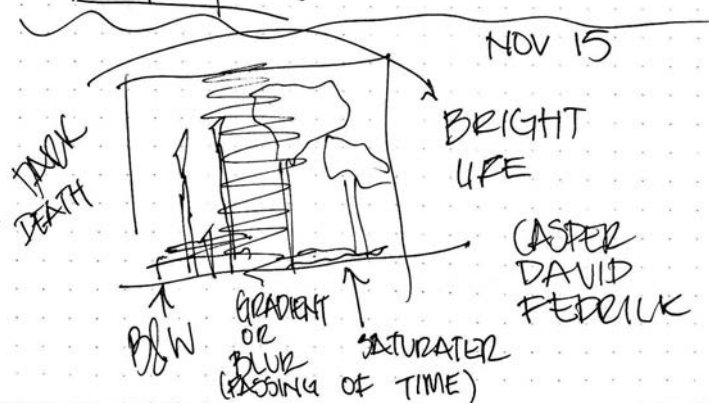 NOV 15
DARK
DEATH
BRIGHT
LIFE
CASPER
DAVID
FEDRICK
B&W
GRADIENT
OR
BLUR
(PASSING OF TIME)
SATURATER